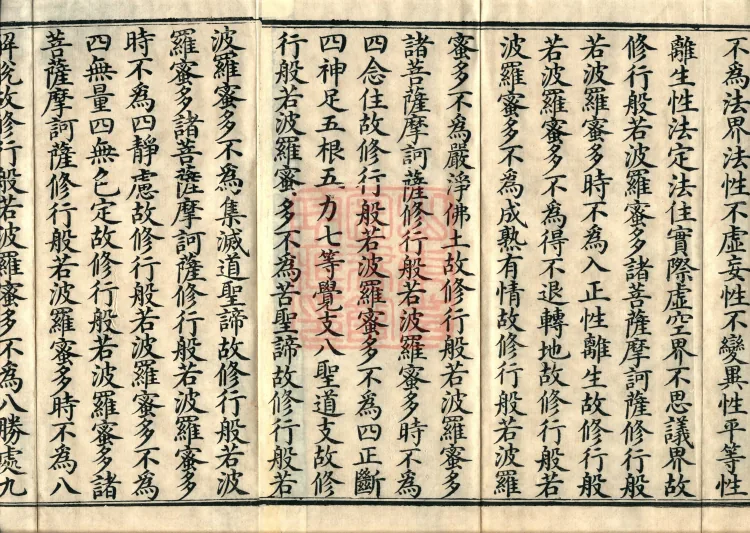 不為法界法性不虛妄性不變異性平等性
離生性法定法住實際虛空界不思議界故
修行般若波羅蜜多諸菩薩摩訶薩修行般
若波羅蜜多時不為入正性離生故修行般
若波羅蜜多不為得不退轉地故修行般若
波羅蜜多不為成熟有情故修行般若波羅
蜜多不為嚴淨佛土故修行般若波羅蜜多
諸菩薩摩訶薩修行般若波羅蜜多時不為
四念住故修行般若波羅蜜多不為四正斷
四神足五根五力七等覺支八聖道支故修
行般若波羅蜜多不為苦聖諦故修行般若
波羅蜜多不為集滅道聖諦故修行般若波
羅蜜多諸菩薩摩訶薩修行般若波羅蜜多
時不為四靜慮故修行般若波羅蜜多不為
四無量四無色定故修行般若波羅蜜多諸
菩薩摩訶薩修行般若波羅蜜多時不為八
解脫故修行般若波羅蜜多不為八勝處九